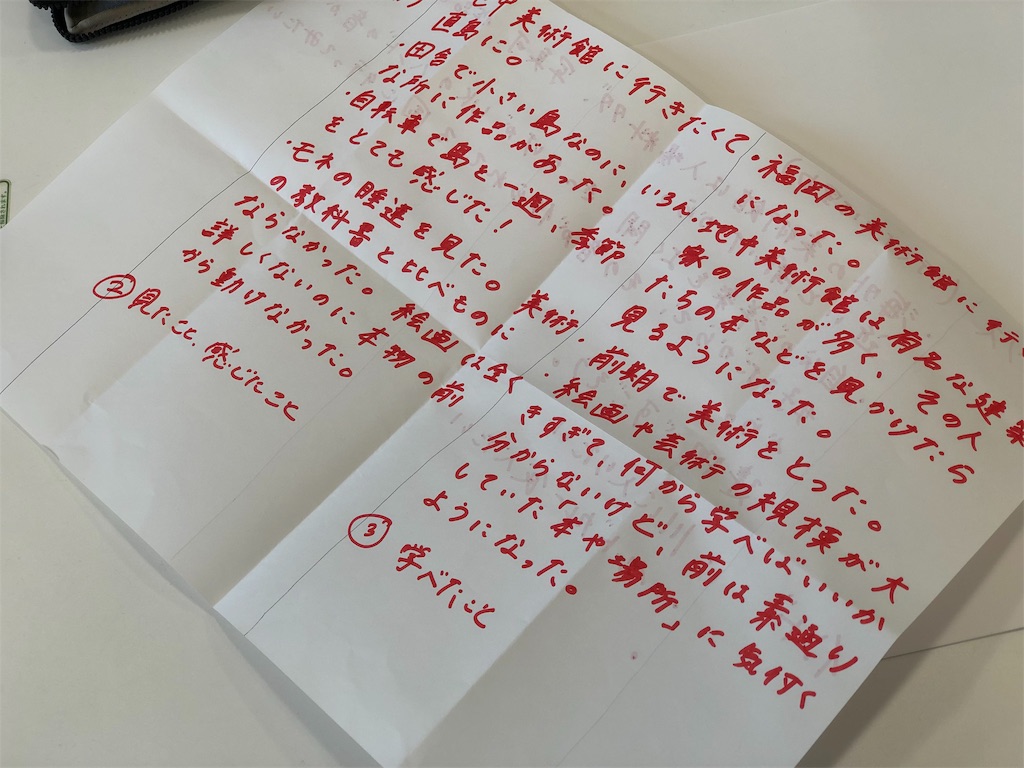 中美術館に行きたくて、
直島に。
・田舎で小さい島なのに、いろん
な所に作品があった。
・自転車で島を一週、季節
をとても感じた!
・モネの睡蓮を見た。美術
の教科書と比べものに
ならなかった。絵画は全く
詳しくないのに本物の前
から動けなかった。
② 見たこと、感じたこと
・福岡の美術館に行
になった。
・地中美術館は有名な建築
家の作品が多く、その人
たちの本などを見かけたら
見るようになった。
・前期で美術をとった。
絵画や芸術の規模が大
きすぎて、何から学べばいいか
分からないけど、前は素通り
していた本や「場所」に気付く
ようになった。
③ 学べたこと